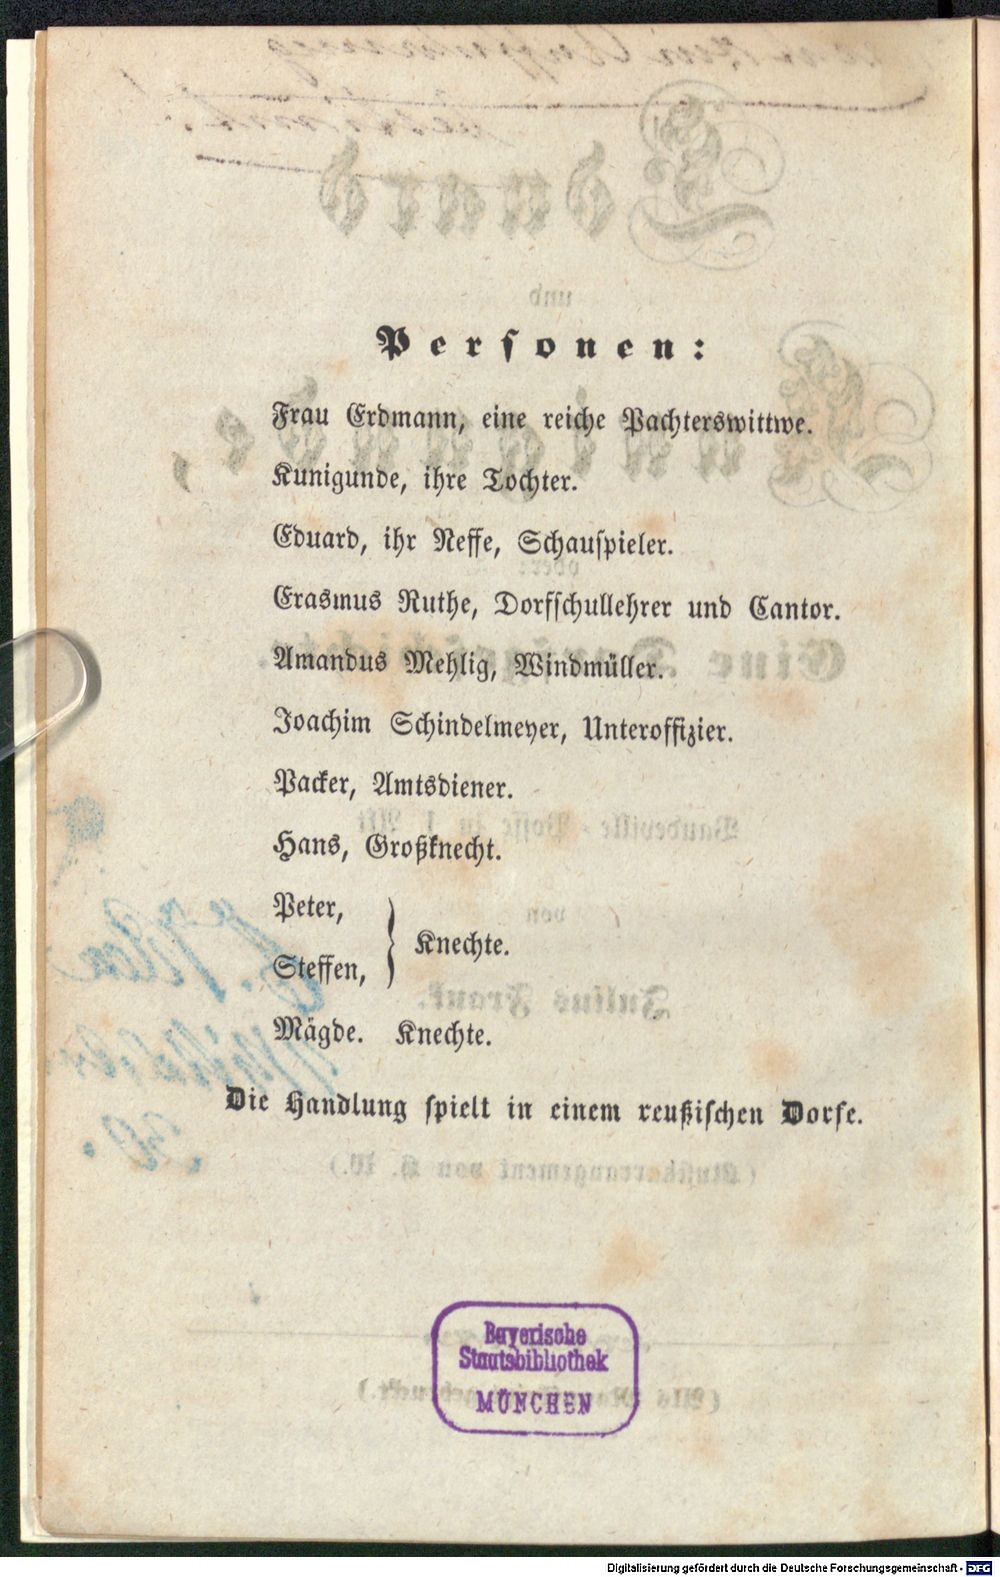 Personen:
Frau Erdmann, eine reiche Pachterswittwe.
Kunigunde, ihre Tochter.
Eduard, ihr Neffe, Schauspieler.
Erasmus Ruthe, Dorfschullehrer und Cantor.
Amandus Mehlig, Windmüller.
Joachim Schindelmeyer, Unteroffizier.
Packer, Amtsdiener.
Hans, Großknecht.
Peter,
Steffen, } Knechte.
Mägde. Knechte.
Die Handlung spielt in einem reußischen Dorfe.
Bayerische
Staatsbibliothek
MÜNCHEN
Digitalisierung gefördert durch die Deutsche Forschungsgemeinschaft - DFG